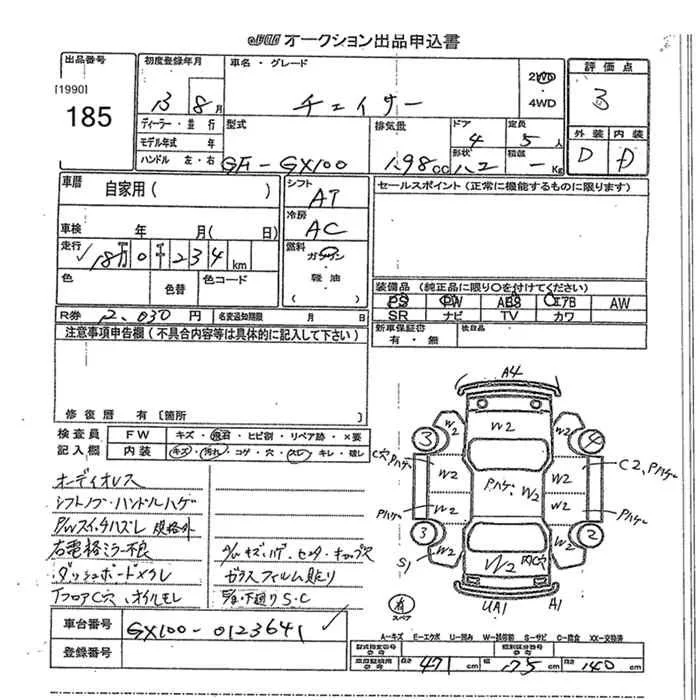 JAA オークション出品申込書
出品番号
[1990]
185
初度登録年月
13 8月
車名・グレード
チェイサー
2WD
・4WD
評価点
3
外装 内装
D D
ディーラー・並行
モデル年式 年
ハンドル 左・右
型式
GF-GX100
排気量
1.98cc
ドア
4
形状
定員
5人
積載
- Kg
車歴 自家用( )
車検 年 月( 日)
走行
18万0千234km
色
色替
色コード
シフト
AT
冷房
AC
燃料
ガソリン
・軽油
( )
セールスポイント(正常に機能するものに限ります)
装備品(純正品に限り〇を付けてください)
PS PW ABS エアB AW
SR ナビ TV カワ
R券 12,030円 名変通知期限 月 日
新車保証書 後日品
有・無
注意事項申告欄(不具合内容等は具体的に記入して下さい)
修復歴 有〔箇所 〕
検査員
記入欄
FW キズ・飛石・ヒビ割・リペア跡・×要
内装 キズ・汚れ・コゲ・穴・スレ・キレ・破レ
オーディオレス
シフトノブ・ハンドルハゲ
P/Wスイッチハズレ 規格外
右電格ミラー不良
ダッシュボードメクレ
FフロアC穴、オイルモレ
ガラスフィルム貼り
下廻りS・C
A4
W2
3 W2 W2 4
C穴 Pハゲ W2 W2 C2、Pハゲ
Pハゲ W2
Pハゲ W2 W2 Pハゲ
3 W2 W2 2
S1 W2 内C穴
UA1 A1
有
スペア
車台番号 GX100-0123641
登録番号
A-キズ E-エクボ U-凹み W-補修跡 S-サビ C-腐食 XX-交換済
型式指定番号
参考
類別区分番号
参考
車庫証明用
参考
長さ 471 cm 幅 175 cm 高さ 140 cm